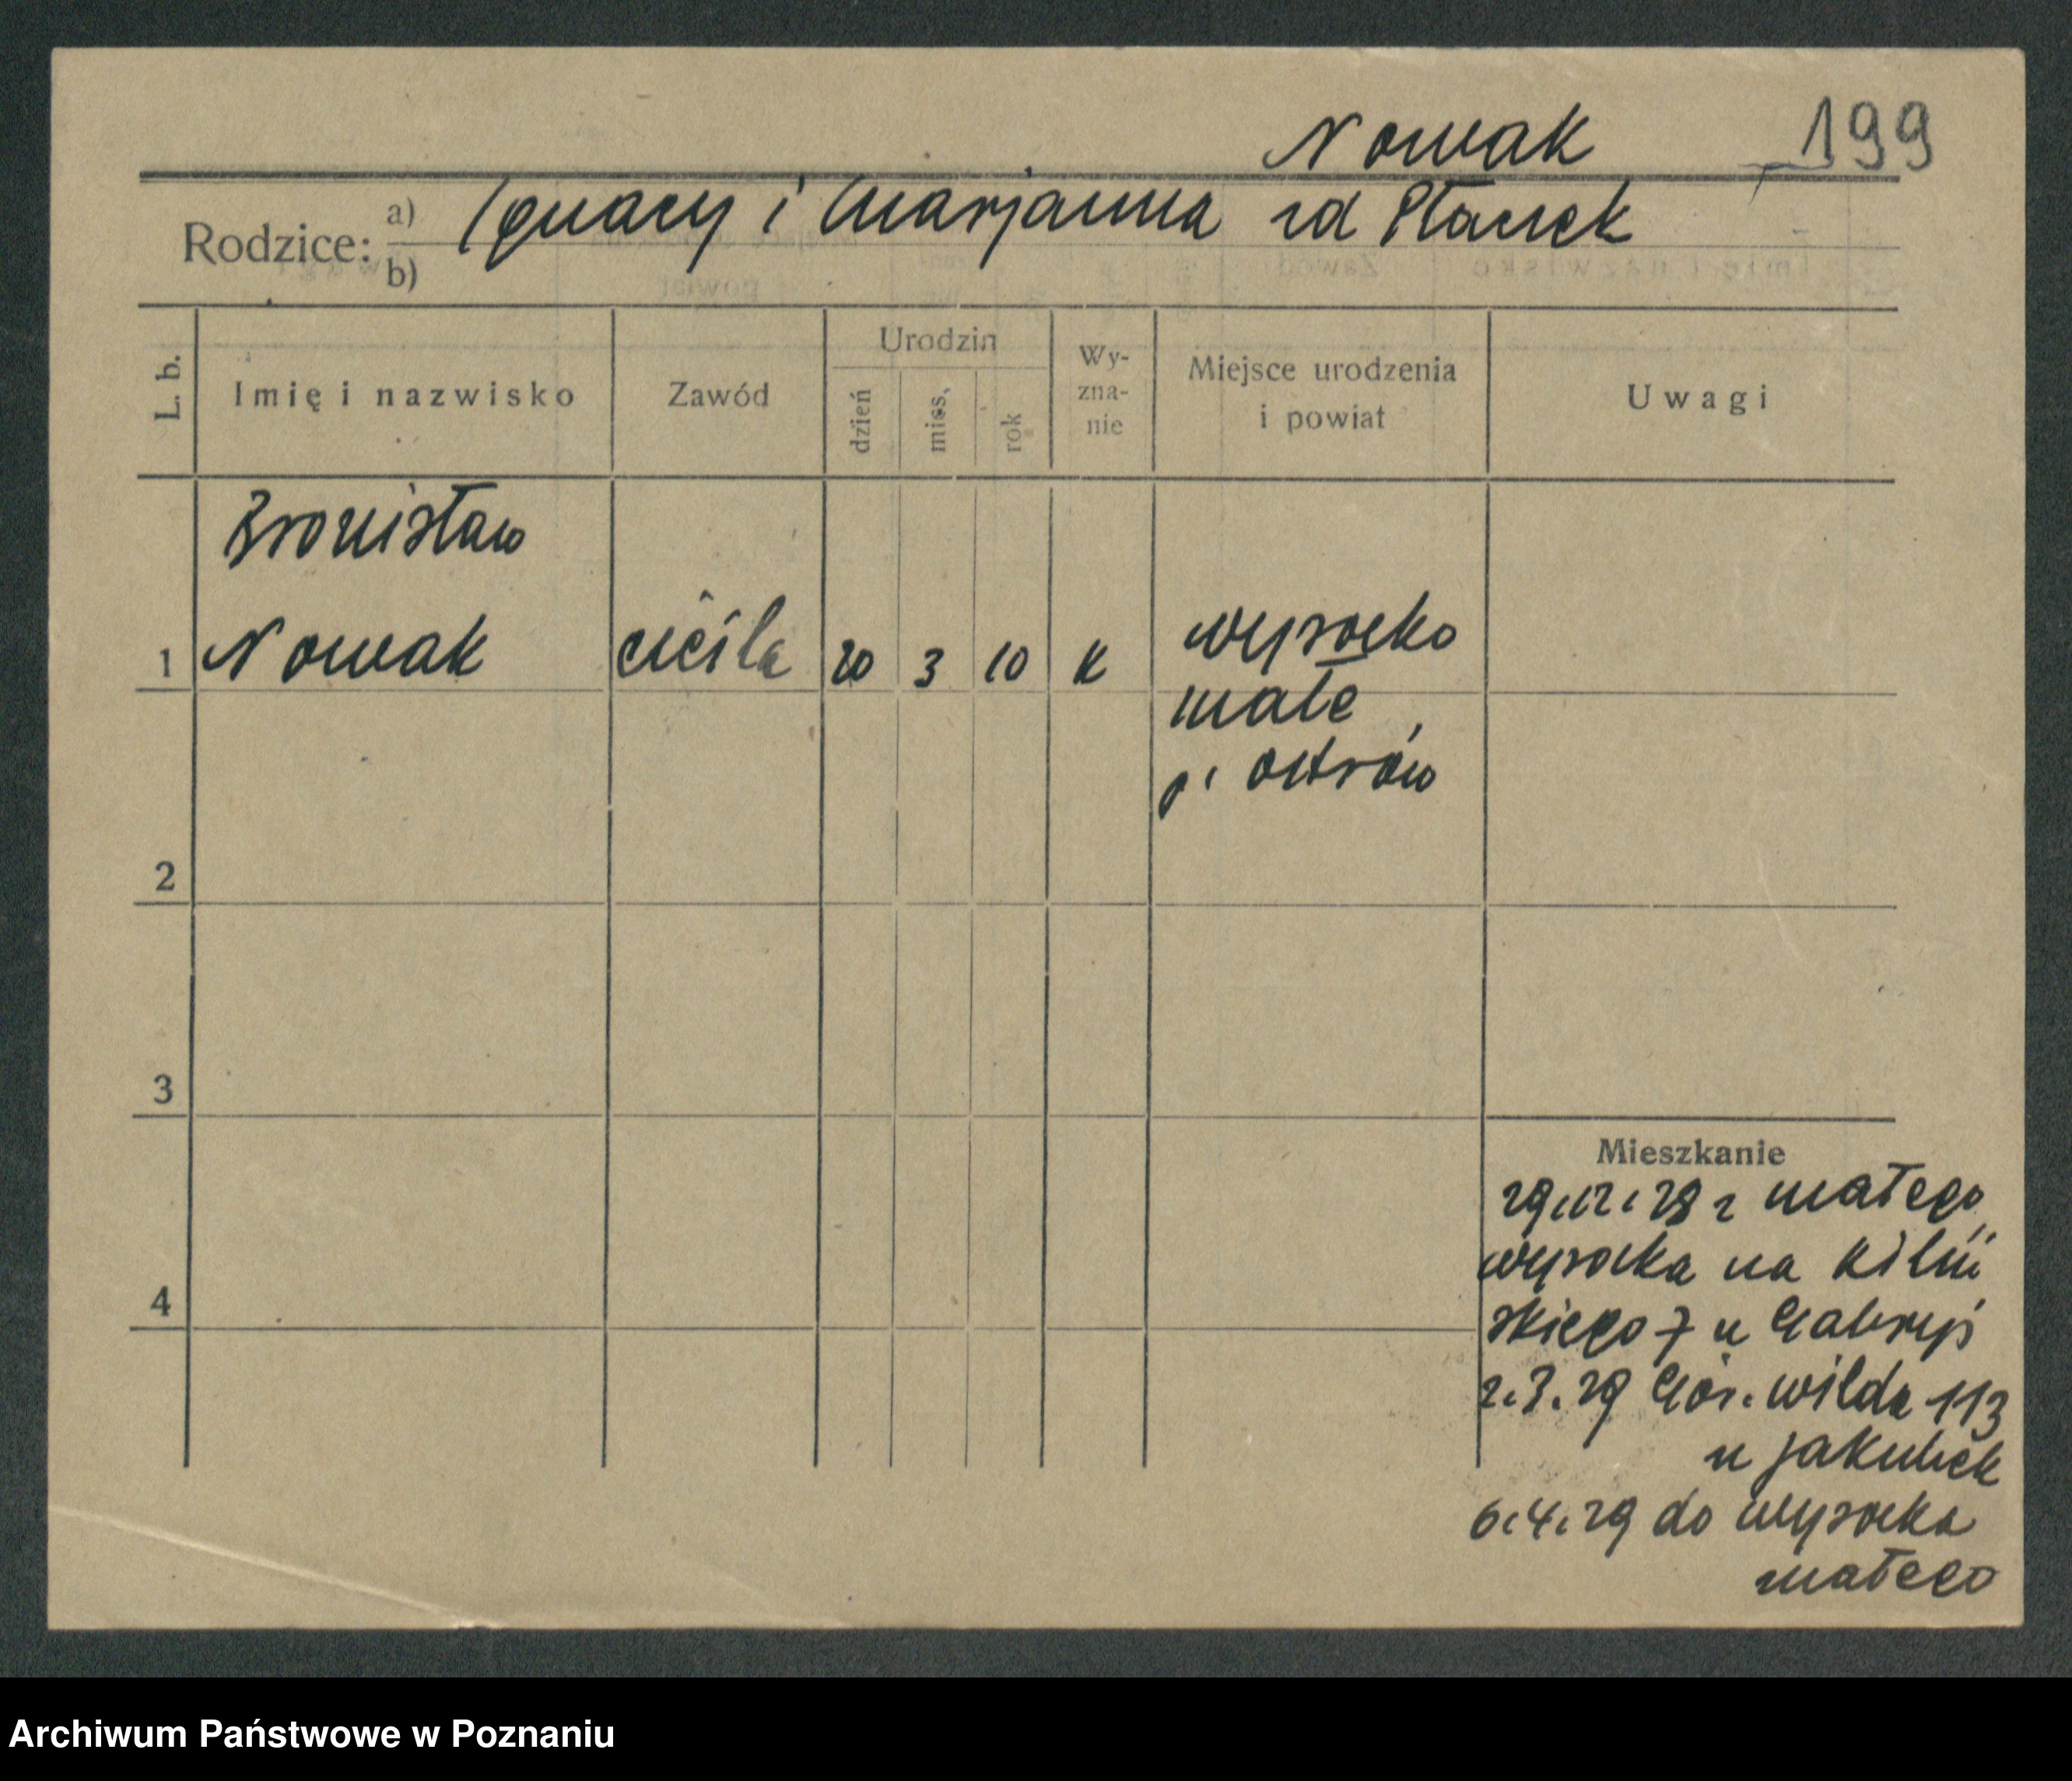 Nowak 199
Rodzice: a) Ignacy i Marjanna zd Ptaszek
b)
L. b.
Imię i nazwisko
Zawód
Urodzin
dzień
mies.
rok
Wy-
zna-
nie
Miejsce urodzenia
i powiat
Uwagi
Bronisław
1 Nowak cieśla 20 3 10 K Wysocko
małe
p. Ostrów
2
3
4
Mieszkanie
29.12.28 z małego
Wysocka na Kiliń
skiego 7 u Gabryś
2.3.29 Gór. Wilda 113
u Jakubek
6.4.29 do Wysocka
małego
Archiwum Państwowe w Poznaniu